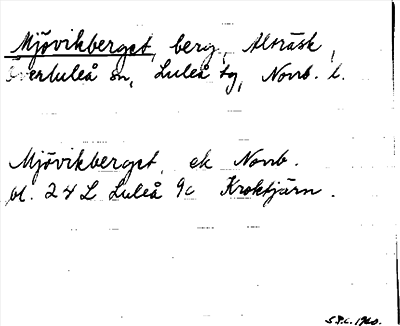 Mjövikberget, berg, Alträsk,
Överluleå sn, Luleå tg, Norrb. l.
Mjövikberget, ek Norrb.
bl. 24 L Luleå 9c Kroktjärn.
S.P.L. 1960.